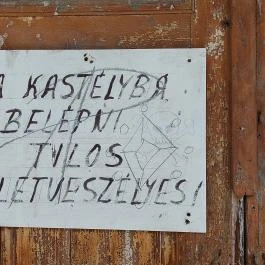 A KASTÉLYBA
BELÉPNI
TILOS
LETVESZÉLYES!